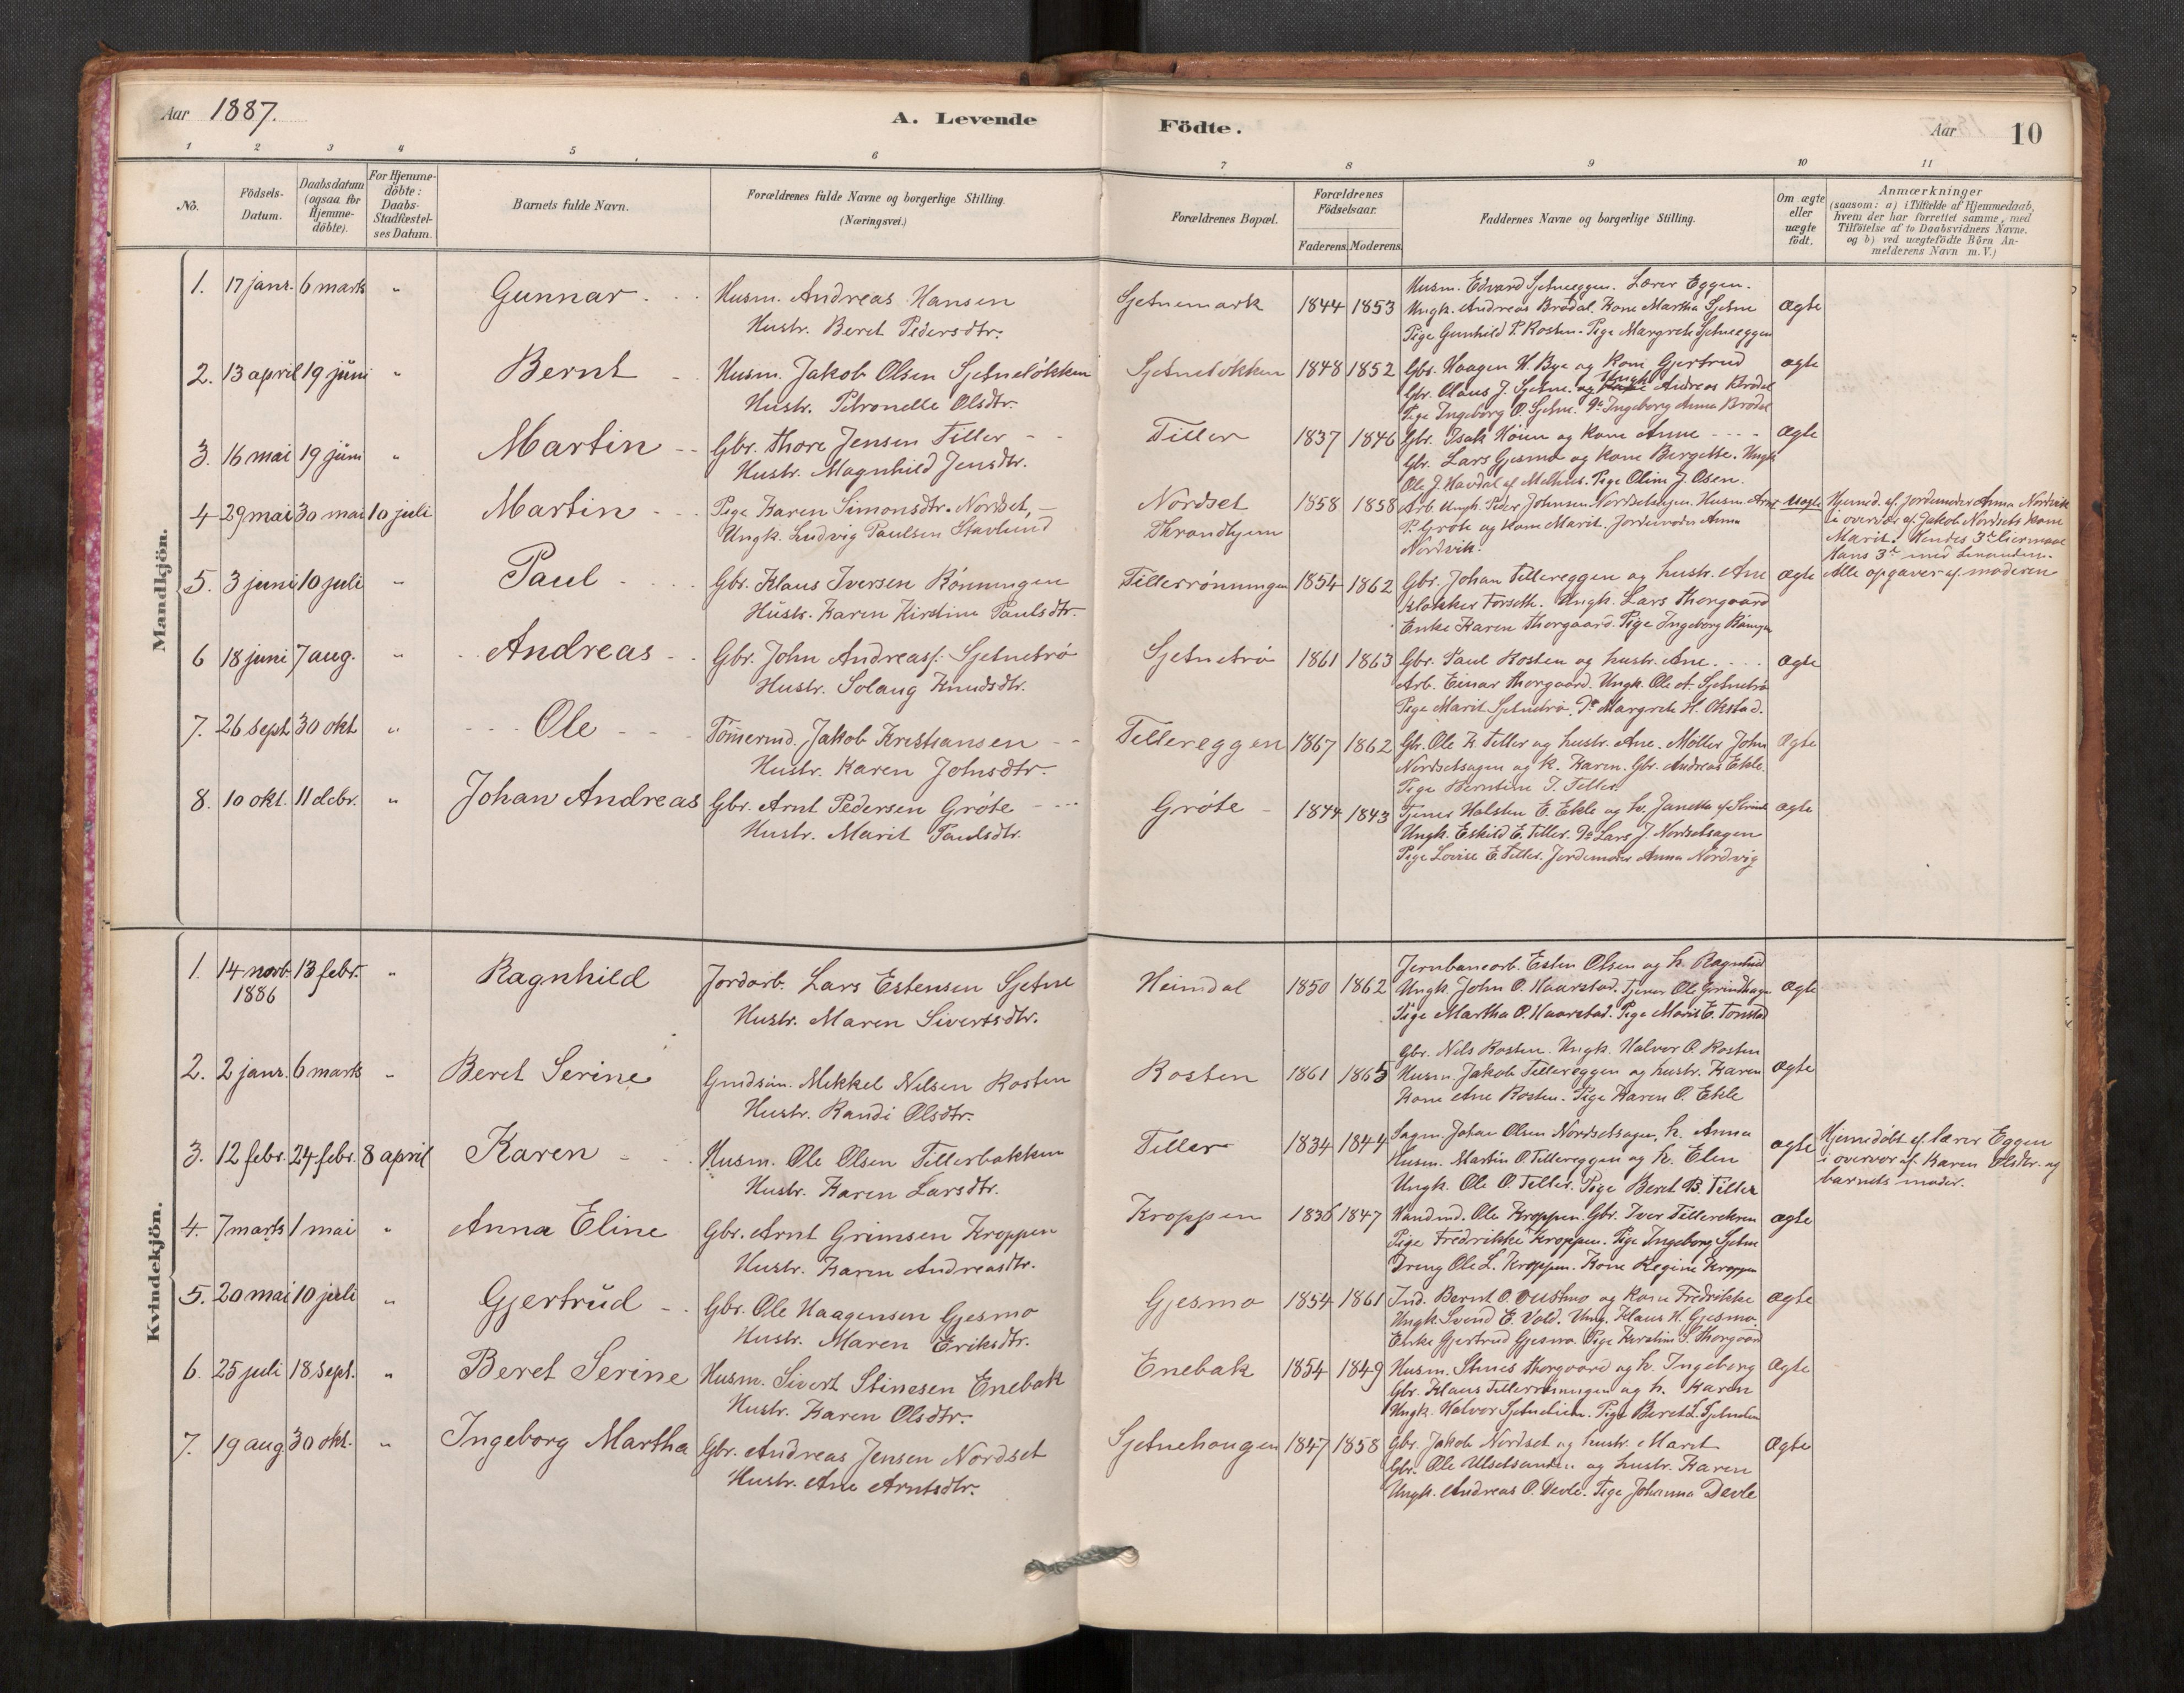 Aar 1887.
A. Levende Födte.
Aar 10
1 2 3 4 5 6 7 8 9 10 11
No.
Födsels-Datum.
Daabsdatum (ogsaa for Hjemme-döbte).
For Hjemme-döbte: Daabs-Stadfæstel-ses Datum.
Barnets fulde Navn.
Forældrenes fulde Navne og borgerlige Stilling.
(Næringsvei.)
Forældrenes Bopæl.
Forældrenes Födselsaar.
Faderens. Moderens.
Faddernes Navne og borgerlige Stilling.
Om ægte eller uægte födt.
Anmærkninger
(saasom: a) i Tilfælde af Hjemmedaab,
hvem der har forrettet samme, med
Tilföielse af to Daabsvidners Navne.
og b) ved uægtefödte Börn An-
melderens Navn m. V.)
Mandkjön.
1. 17 janr. 6 marts " Gunnar Husm. Andreas Hansen
Hustr. Beret Pedersdtr.
Sjetnemark 1844 1853
Husm. Edvard Sjetneeggen. Lærer Eggen.
Ungk. Andreas Brødal. Kone Martha Sjetne
Pige Gunhild P. Rosten. Pige Margrete Sjetneeggen
ægte
2. 13 april 19 juni " Bernt Husm. Jakob Olsen Sjetneløkken
Hustr. Petronelle Olsdtr.
Sjetneløkken 1848 1852
Gbr. Haagen H. Bye og Kone Gjertrud
Gbr. Claus J. Sjetne. og Ungk. Andreas Brødal
Pige Ingeborg O. Sjetne. Do Ingeborg Anna Brødal
ægte
3. 16 mai 19 juni " Martin Gbr. Thore Jensen Tiller
Hustr. Magnhild Jensdtr.
Tiller 1837 1846
Gbr. Isak Høien og Kone Anne
Gbr. Lars Gjesmo og Kone Bergitte. Ungk
Ole J. Havdal af Melhus. Pige Oline J. Olsen.
ægte
4 29 mai 30 mai 10 juli Martin Pige Karen Simonsdtr. Nordset,
Ungk. Ludvig Paulsen Stavlund
Nordset
Throndhjem
1858 1858
Arb. Ungk. Peder Johnsen Nordsetsagen. Husm. Arnt
P. Grøte og Kone Marit. Jordemoder Anna
Nordvik.
uægte
Hjemmed. af jordemoder Anna Nordvik
i overvær af Jakob Nordsets kone
Marit. Hendes 3die Leiermaal
Hans 3die med
Alle opgaver af moderen
5. 3 juni 10 juli " Paul Gbr. Klaus Iversen Rønningen
Hustr. Karen Kirstine Paulsdtr.
Tillerrønningen 1854 1862
Gbr. Johan Tillereggen og hustr. Ane
Klokker Forseth. Ungk. Lars Thorgaard
Enke Karen Thorgaard. Pige Ingeborg
ægte
6 18 juni 7 aug. " Andreas Gbr. John Andreass. Sjetnetrø
Hustr. Solaug Knudsdtr.
Sjetnetrø 1861 1863
Gbr. Paul Rosten og hustr. Ane.
Arb. Einar Thorgaard. Ungk. Ole A. Sjetnetrø
Pige Marit Sjetnetrø. Do Margrete H. Okstad.
ægte
7. 26 sept. 30 okt " Ole Tömmermd. Jakob Kristiansen
Hustr. Karen Johnsdtr.
Tillereggen 1867 1862
Gbr. Ole K. Tiller og hustr. Ane. Møller John
Nordsetsagen og K. Karen. Gbr. Andreas Ekle.
Pige Berntine J. Tiller
ægte
8. 10 okt. 11 debr. " Johan Andreas Gbr. Arnt Pedersen Grøte
Hustr. Marit Paulsdtr.
Grøte 1844 1843
Tjener Halsten E. Ekle og h. Janetta af Strinde
Ungk. Eskild E. Tiller. Do Lars J. Nordsetsagen
Pige Lovise E. Tiller. Jordemoder Anna Nordvig
ægte
Kvindekjön.
1. 14 novb. 1886 13 febr. " Ragnhild Jordarb. Lars Estensen Sjetne
Hustr. Maren Sivertsdtr.
Heimdal 1850 1862
Jernbanearb. Esten Olsen og h. Ragnhild
Ungk. John O. Haarstad. Tjener Ole Grindhagn
Pige Martha O. Haarstad. Pige Marit E. Tonstad
ægte
2. 2 janr. 6 marts " Beret Serine Gmdsm. Mikkel Nilsen Rosten
Hustr. Randi Olsdtr.
Rosten 1861 1865
Gbr. Nils Rosten. Ungk. Halvor O. Rosten
Husm. Jakob Tillereggen og hustr. Karen
Kone Ane Rosten. Pige Karen O. Ekle
ægte
3. 12 febr. 24 febr. 8 april Karen Husm. Ole Olsen Tillerbakken
Hustr. Karen Larsdtr.
Tiller 1834 1844
Sagm. Johan Olsen Nordsetsagen, h. Anna
Husm. Martin O. Tillereggen og h. Elen
Ungk. Ole O. Tiller. Pige Beret B. Tiller
ægte
Hjemdøbt af lærer Eggen
i overvær af Karen Olsdtr. og
barnets moder.
4. 7 marts 1 mai " Anna Eline Gbr. Arnt Grimsen Kroppen
Hustr. Karen Andreasdtr.
Kroppen 1836 1847
Handmd. Ole Kroppen. Gbr. Iver Tillerekren
Pige Fredrikke Kroppen. Pige Ingeborg Sjetne
Dreng Ole L. Kroppen. Kone Regine Kroppen
ægte
5. 20 mai 10 juli " Gjertrud Gbr. Ole Haagensen Gjesmo
Hustr. Maren Eriksdtr.
Gjesmo 1854 1861
Ind. Bernt O. Oustmo og kone Fredrikke
Ungk. Svend E. Vold. Ungk. Klaus H. Gjesmo.
Enke Gjertrud Gjesmo. Pige Kirstine S. Thorgaard
ægte
6. 25 juli 18 sept. " Beret Serine Husm. Sivert Stinesen Enebak
Hustr. Karen Olsdtr.
Enebak 1854 1849
Husm. Stines Thorgaard og h. Ingeborg
Gbr. Klaus Tillerrønningen og h. Karen
Ungk. Halvor Sjetnelien. Pige Beret L. Sjetnelien
ægte
7. 19 aug 30 okt. " Ingeborg Martha Gbr. Andreas Jensen Nordset
Hustr. Ane Arntsdtr.
Sjetnehaugen 1847 1858
Gbr. Jakob Nordset og hustr. Marit
Gbr. Ole Ulsetsanden og hustr. Karen
Ungk. Andreas O. Devle. Pige Johanna Devle
ægte